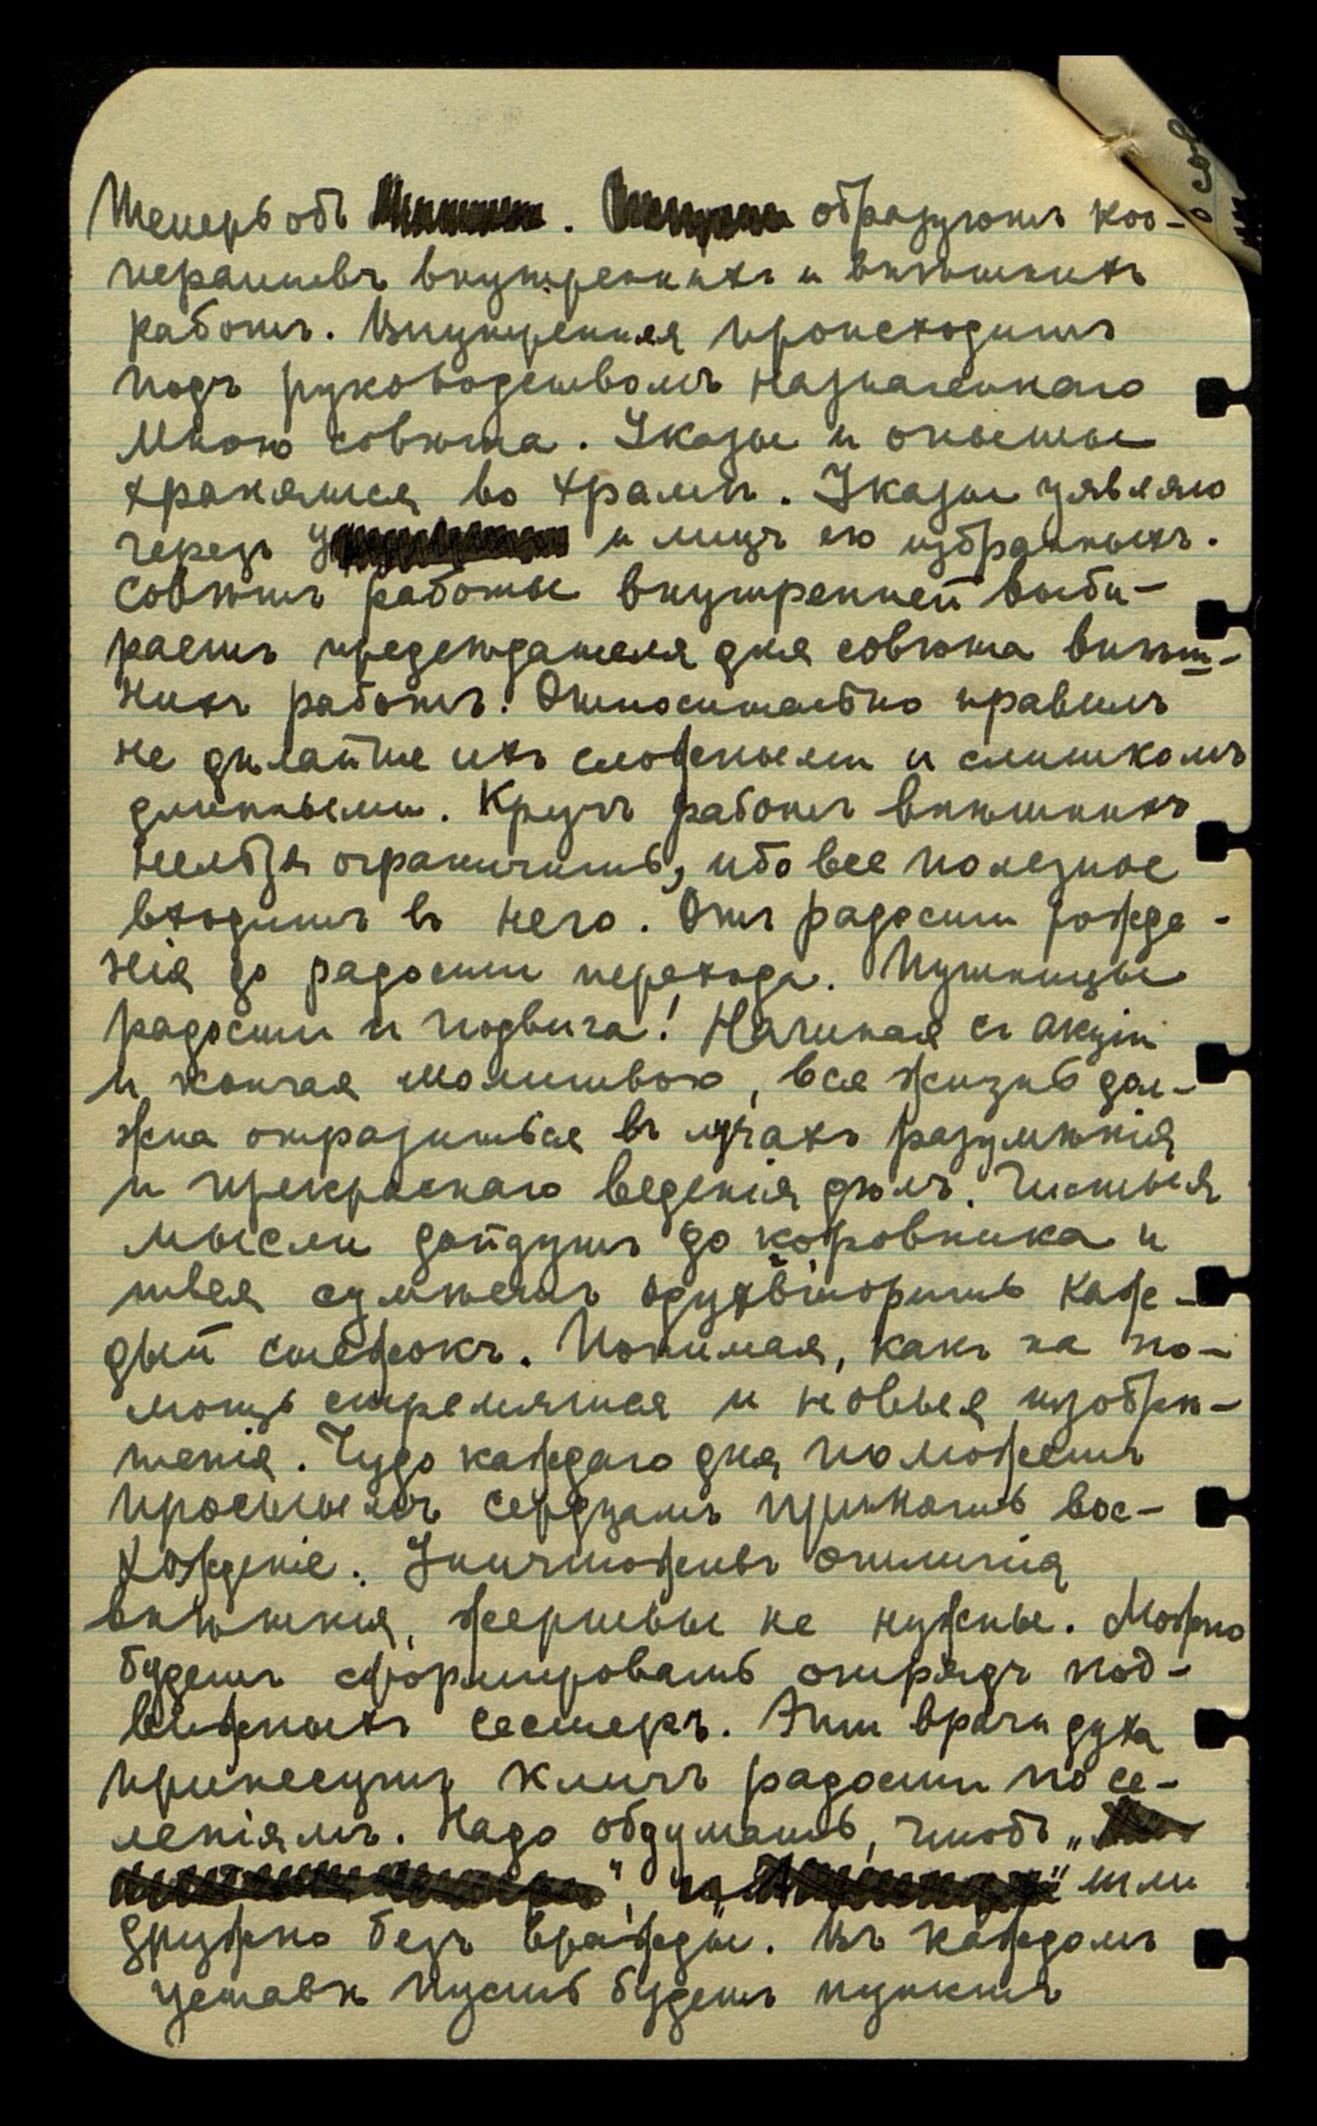 Теперь объ . образуютъ коо-
перативъ внутреннихъ и внѣшнихъ
работъ. Внутренняя происходитъ
подъ руководствомъ назначеннаго
Мною совѣта. Указы и опыты
хранятся во храмѣ. Указы уявляю
черезъ и лицъ ею избранныхъ.
Совѣтъ работы внутренней выби-
раетъ предсѣдателя для совѣта внѣш-
нихъ работъ. Относительно правилъ
не дѣлайте ихъ сложными и слишкомъ
длинными. Кругъ работъ внѣшнихъ
нельзя ограничить, ибо все полезное
входитъ въ него. Отъ радости рожде-
нія до радости перехода. Путницы
радости и подвига! Начиная съ акціи
и кончая молитвою, вся жизнь дол-
жна отразиться въ лучахъ разумѣнія
и прекраснаго веденія дѣлъ. Чистыя
мысли дойдутъ до коровника и
швея сумѣетъ одухвіторить каж-
дый стежокъ. Понимая, какъ на по-
мощь стремятся и новыя изобрѣ-
тенія. Чудо каждаго дня поможетъ
простымъ сердцамъ принять вос-
хожденіе. Уничтоживъ отличія
внѣшнія, жертвы не нужны. Можно
будетъ сформировать отрядъ под-
вижныхъ сестеръ. Эти врачи духа
принесутъ кличъ радости по се-
леніямъ. Надо обдумать, чтобъ „
", и " шли
дружно безъ вражды. Въ каждомъ
уставѣ пусть будетъ пунктъ